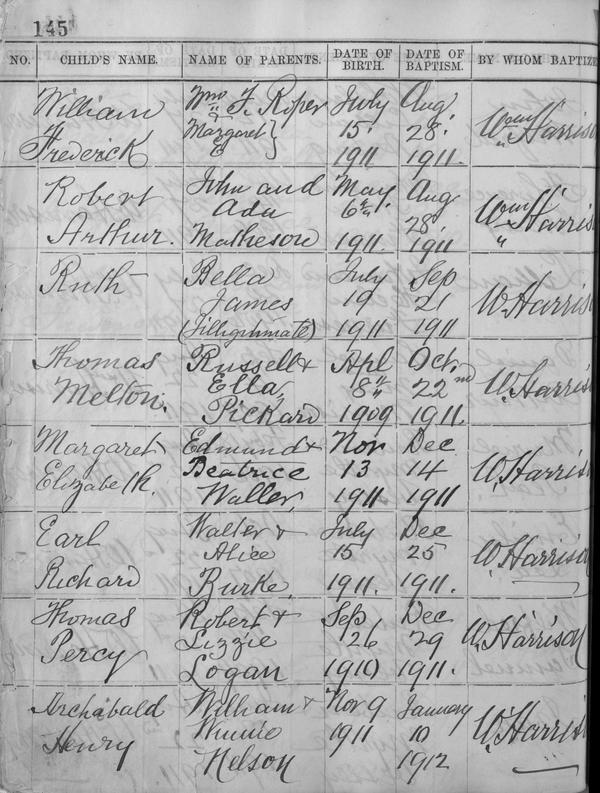 145
NO. CHILD'S NAME. NAME OF PARENTS. DATE OF BIRTH. DATE OF BAPTISM. BY WHOM BAPTIZE
William Wm F. Roper July Aug
& Margaret } 15. 28. Wm Harriso
Frederick E 1911 1911.
Robert John and May Aug
Ada 6th 28. Wm Harris
Arthur. Matheson 1911. 1911
Ruth Bella July Sep
James 19 21 W Harriso
(Illigimate) 1911 1911
Thomas Russell & Apl Oct.
Melton. Ella, 8th 22nd W. Harris
Pickard 1909 1911.
Margaret Edmund & Nov Dec
Elizabeth. Beatrice 13 14 W. Harriso
Waller, 1911 1911
Earl Walter & July Dec
Alice 15 25 W. Harrison
Richard Burke, 1911. 1911.
Thomas Robert & Sep Dec
Percy Lizzie 26 29 W. Harrison
Logan 1910 1911.
Archibald William & Nov 9 January
Henry Winnie 1911 10 W. Harris
Nelson 1912